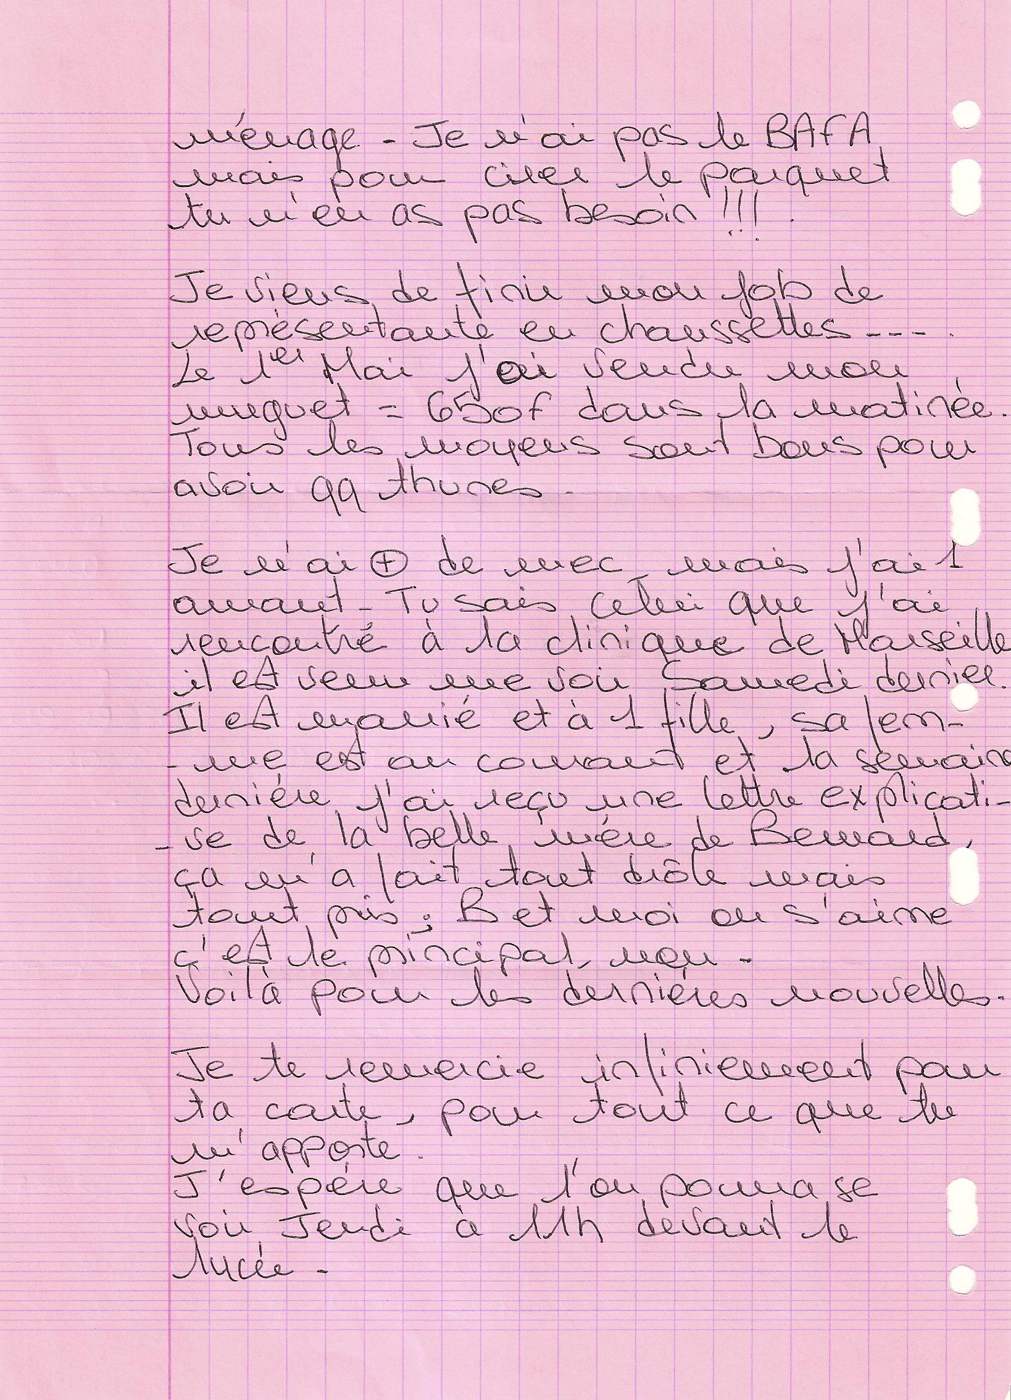 ménage - Je n'ai pas le BAFA
mais pour cirer le parquet
tu n'en as pas besoin !!!.
Je viens de finir mon job de
représentante en chaussettes ---.
Le 1er Mai j'ai vendu mon
muguet = 650f dans la matinée.
Tous les moyens sont bons pour
avoir qq thunes.
Je n'ai ⊕ de mec, mais j'ai 1
amant - Tu sais celui que j'ai
rencontré à la clinique de Marseille
il est venu me voir Samedi dernier.
Il est marié et à 1 fille, sa fem-
-me est au courant et la semaine
dernière j'ai reçu une lettre explicati-
-ve de la belle mère de Bernard,
ça m'a fait tout drôle mais
tout pris ; B et moi on s'aime
c'est le principal, non -
Voilà pour les dernières nouvelles.
Je te remercie infiniement pour
ta carte, pour tout ce que tu
m'apporte.
J'espère que l'on pourra se
voir Jeudi à 11h devant le
lycée -